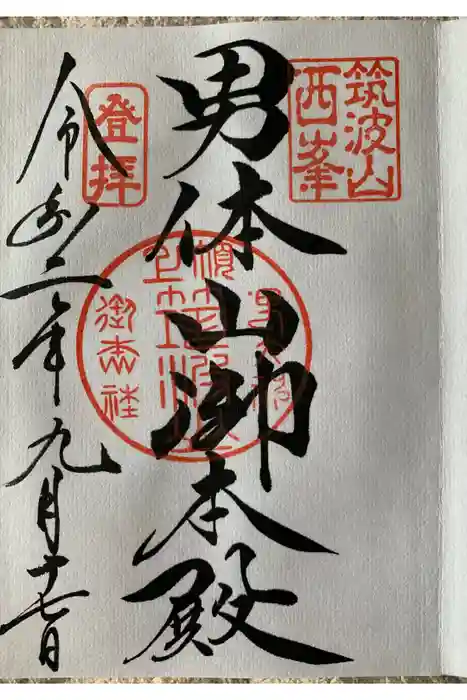 筑波山
西峯
男体山御本殿
登拝
御本社
令和二年九月十七日